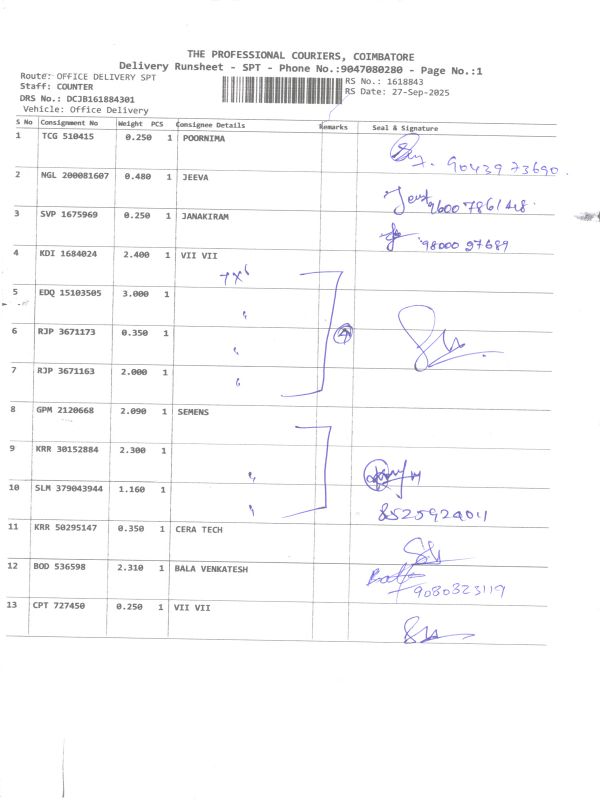 THE PROFESSIONAL COURIERS, COIMBATORE
Delivery Runsheet - SPT - Phone No.:9047080280 - Page No.:1
Route: OFFICE DELIVERY SPT
RS No.: 1618843
Staff: COUNTER
RS Date: 27-Sep-2025
DRS No.: DCJB161884301
Vehicle: Office Delivery
S No Consignment No Weight PCS Consignee Details Remarks Seal & Signature
1 TCG 510415 0.250 1 POORNIMA
9043973690.
2 NGL 200081607 0.480 1 JEEVA
Jeeva 9600786148.
3 SVP 1675969 0.250 1 JANAKIRAM
98000 97689
4 KDI 1684024 2.400 1 VII VII
5 EDQ 15103505 3.000 1 "
6 RJP 3671173 0.350 1 "
4
7 RJP 3671163 2.000 1 "
8 GPM 2120668 2.090 1 SEMENS
9 KRR 30152884 2.300 1 "
10 SLM 379043944 1.160 1 "
8525924011
11 KRR 50295147 0.350 1 CERA TECH
12 BOD 536598 2.310 1 BALA VENKATESH
9080323119
13 CPT 727450 0.250 1 VII VII